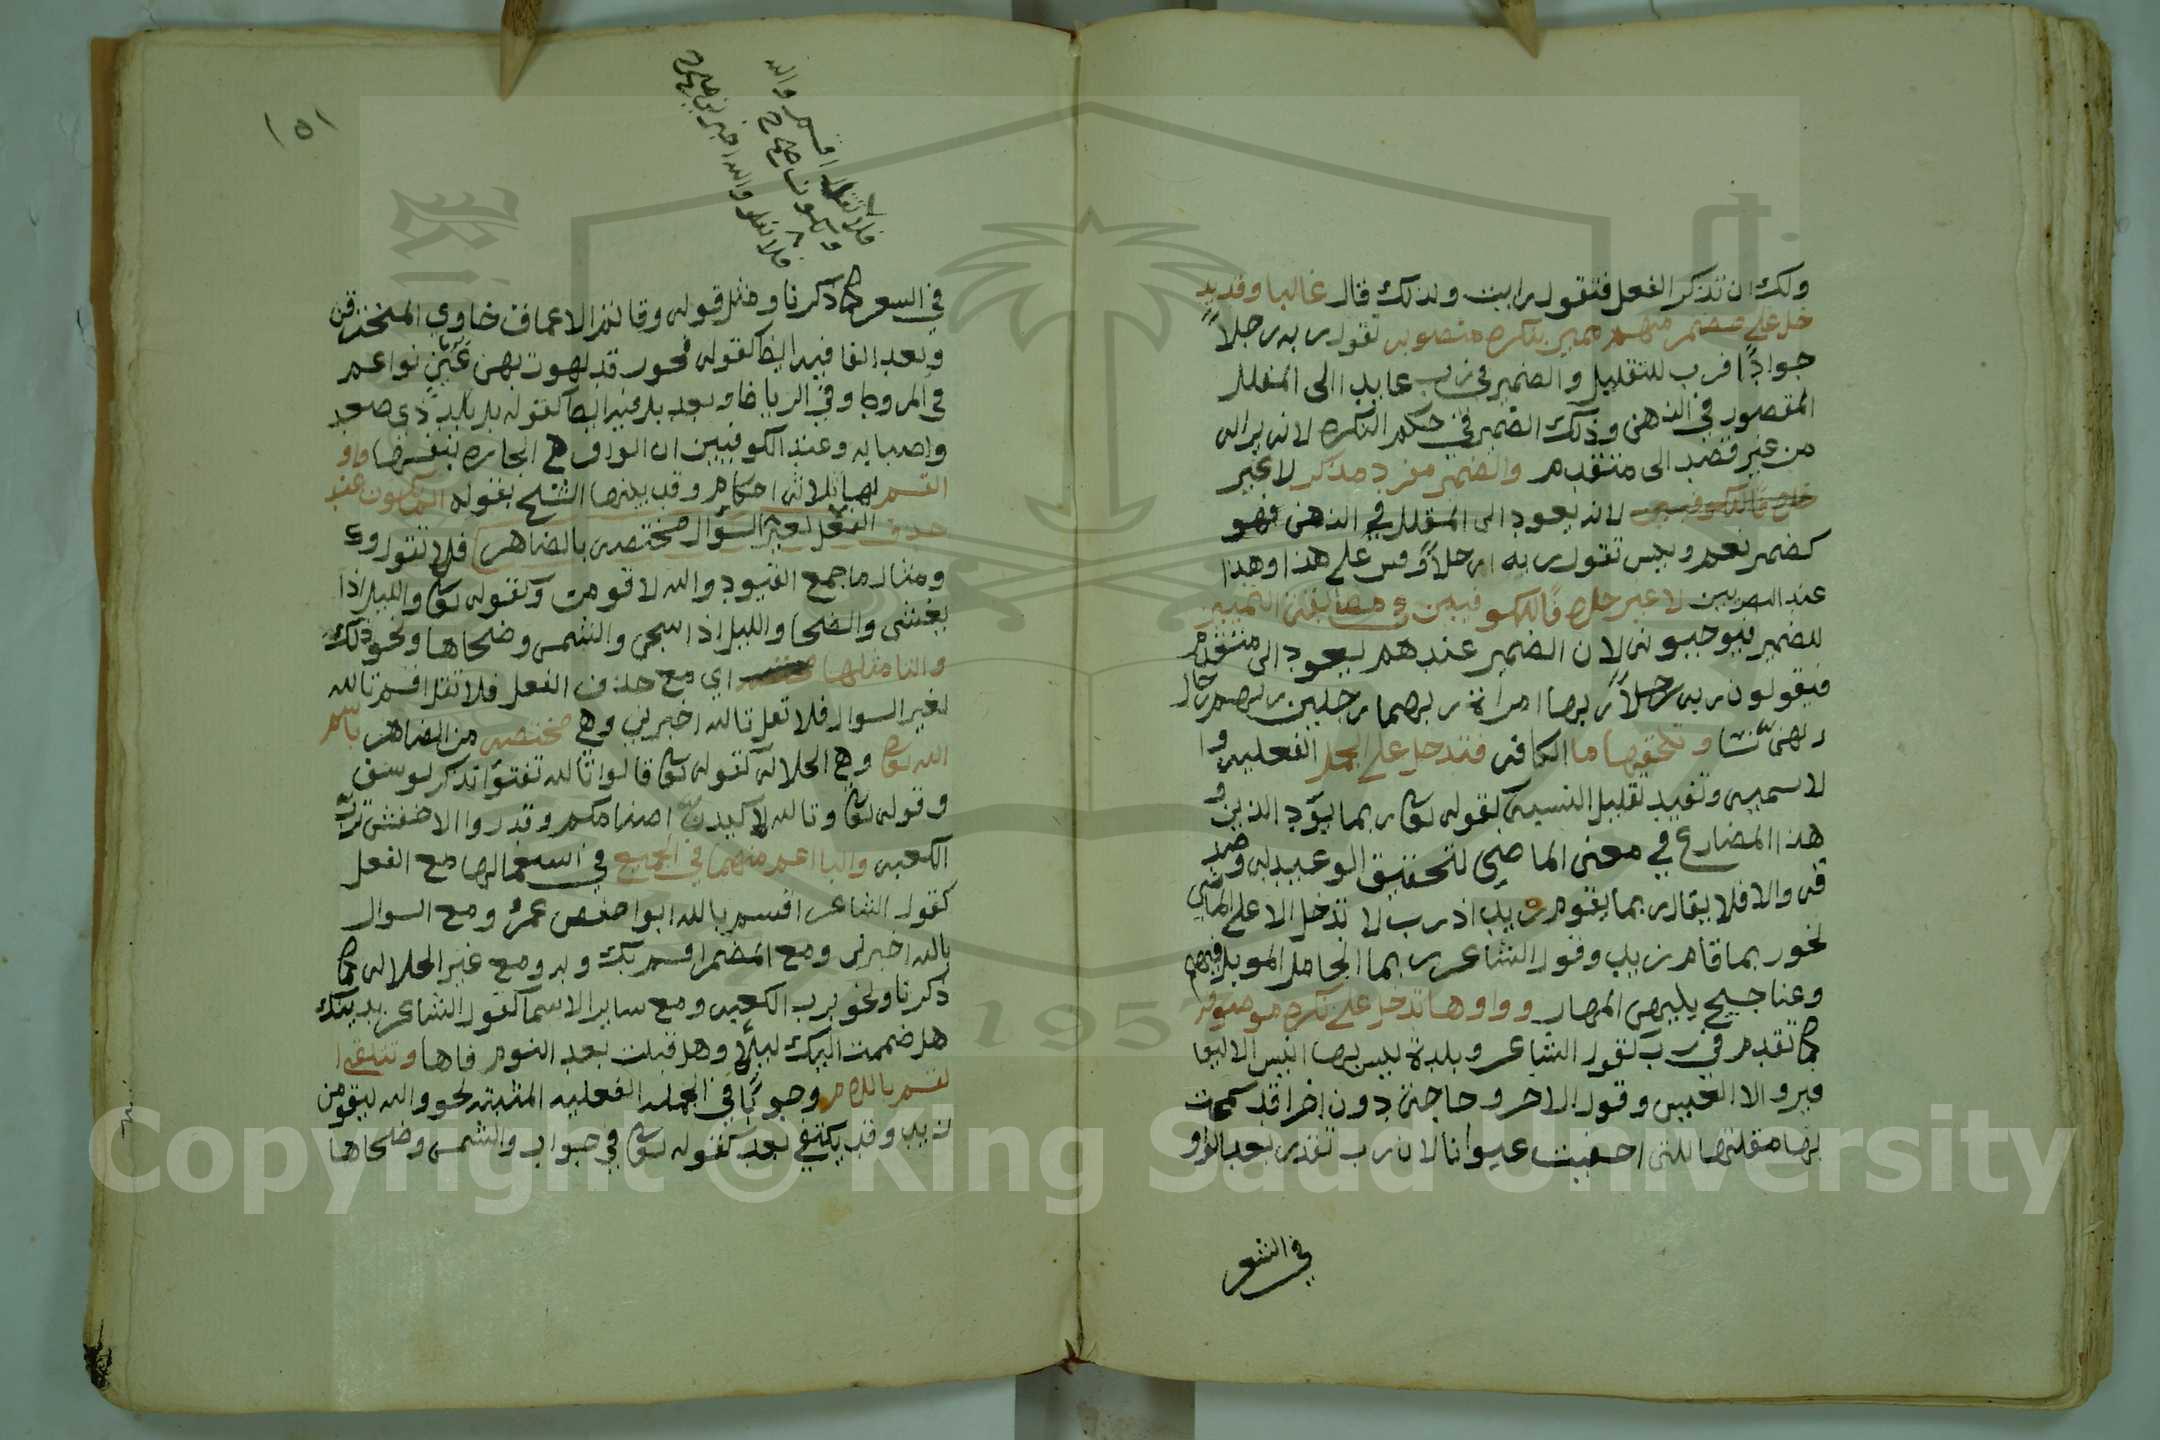 ولك ان تذكر الفعل فتقول رايت ولذلك قال غالبا وقد يد
خل على مضمر مبهم مميز بنكره منصوبه تقول ربه رجلاً
جواداً فرب للتقليل والضمير في ربه عايد االى المقلل
المقصور في الذهن وذلك الضمير في حكم النكره لانه يراله
من غير قصد الى متقدم والضمير مفرد مذكر لا غير
خلافاللكوفيين لانه يعود الى المقلل في الذهن فهو
كضمير نعم وبيس تقول ربه امرحلاً وقس على هذا وهذا
عند البصريين لا غير خلافاللكوفيين في مطابقة التمييز
للضمير فيوجبونه لان الضمير عندهم يعود الى متقدم
فيقولون ربه رجلاً ربها امراة ربهما رجلين ربهم رجال
ربهن نسا وتلحقها ما الكافه فتدخل على الجمل الفعليه وا
لاسميه وتفيد تقليل النسبه كقوله تعا ربما يود الذين و
هذا المضارع في معنى الماضي لتحقيق الوعيد له وصد
قه والا فلا يقال ربما يقوم زيد اذ رب لا تدخل الا على الماضي
نحو ربما قام زيد وقول الشاعر ربما الجامل الموبل فيهم
وعناجيج بينهن المهار وواوها تدخل على نكره موصوفه
كما تقدم في رب كقول الشاعر وبلدة ليس بها انيس الا اليعا
فير والا العيس وقول الاخر وحاجة دون اخرا قد سمحت
بها مقلتها للتي اخفيت عيوانا لان رب تقدر بعد الواو
في الشعر
١٥١
فلا تقل اقسم والله
ويكون صح
فلا تقل والله اخبرني صح
في السعر كما ذكرنا ومثل قوله وقاتم الاعماق خاوي المخترقن
وبعد الفا فيه ايضا كقوله فحور قد لهوت بهن عين نواعم
في المروط وفي الرياط وبعد بل فيه ايضا كقوله بل بلد ذي صعد
واصبابه وعند الكوفيين ان الواو هي الجاره بنفسها وواو
القسم لها ثلاثه احكام وقد بينها الشيخ بقوله انما تكون عند
حذف الفعل لغير السؤال مختصه بالضاهر فلا تقول وك
ومثال ما جمع القيود والله لا قومن وكقوله تعا والليل اذا
يغشى والضحا والليل اذا سجى والشمس وضحاها ونحو ذلك
والتا مثلها مختصه اي مع حذف الفعل فلا تقل اقسم تالله
لغير السوال فلا تقل تالله اخبرني وهي مختصه من الضاهر باسم
الله تعا وهي الجلاله كقوله تعا قالوا تالله تفتؤا تذكر يوسف
وقوله تعا وتالله لاكيدن اصنامكم وقد روا الاخفش ترب
الكعبه والبا اعم منهما في الجميع في استعمالها مع الفعل
كقول الشاعر اقسم بالله ابوا حفص عمر ومع السوال
بالله اخبرني ومع المضمر اقسم بك وبه ومع غير الجلاله كما
ذكرنا ونحو برب الكعبه ومع ساير الاسما كقول الشاعر بدينك
هل ضممت اليك ليلاً وهل قبلت بعد النوم فاها وتتلقى ا
لقسم باللام وجوباً في الجمله الفعليه المثبته نحو والله ليقومن
زيد وقد يكتفي بعد كقوله تعا في جواب والشمس وضحاها
Copyright © King Saud University
1957